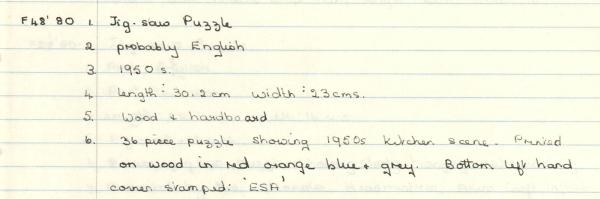 F48'80 1. Jig-saw Puzzle
2. probably English
3. 1950s.
4. length: 30.2cm width: 23cms.
5. Wood & hardboard
6. 36 piece puzzle showing 1950s kitchen scene. Printed
on wood in red orange blue & grey. Bottom left hand
corner stamped: 'ESA'